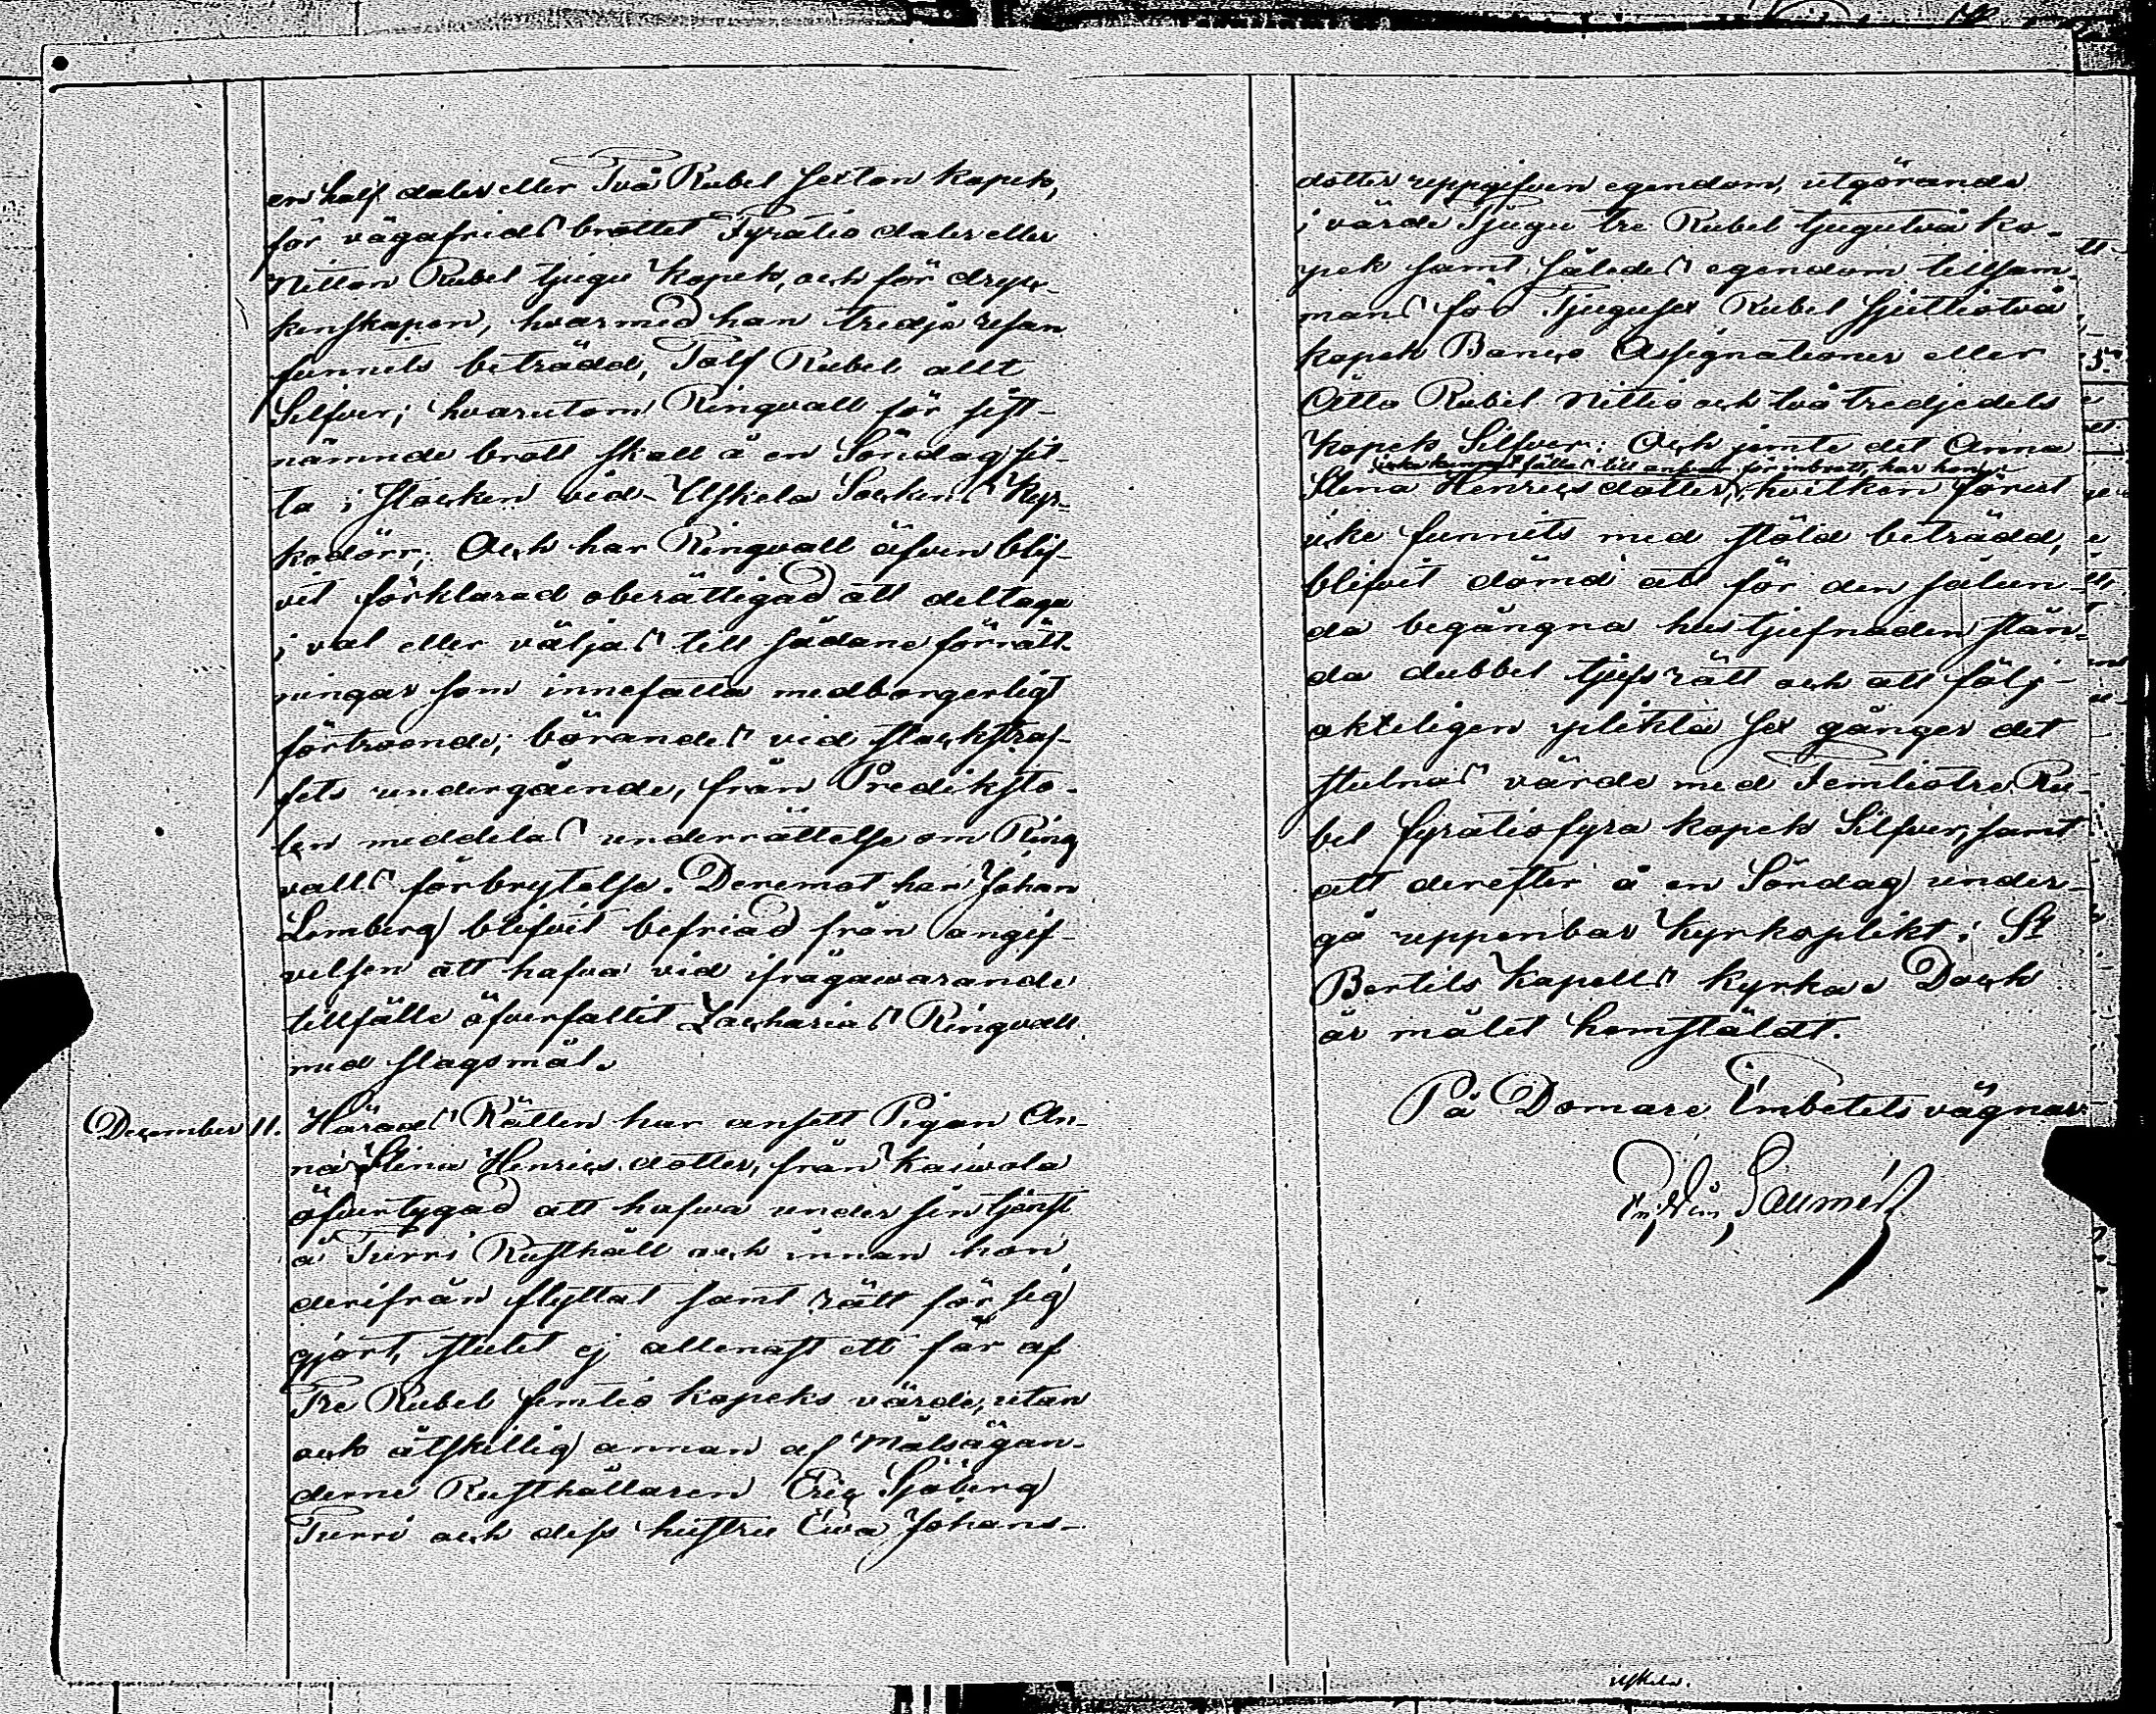 en half daler eller Två Rubel sexton kopek,
för vägafrids brottet Fyratio daler eller
Nitton Rubel tjugu kopek, och för dryc-
kenskapen, hvarmed han tredje resan
funnits beträdd, Tolf Rubel allt
Silfver; hvarutom Ringvall för sist-
nämnde brott skall å en Söndag sit-
ta i stocken vid Ulskela Sockens Kyr-
kodörr; Och har Ringvall äfven blif-
vit förklarad oberättigad att deltaga
i val eller väljas till sådane förrätt-
ningar som innefatta medborgerligt
förtroende; börandes vid stockstraf-
fets undergående, från Prediksto-
len meddelas underrättelse om Ring
valls förbrytelse. Deremot har Johan
Lemberg blifvit befriad från angif-
velsen att hafva vid ifrågawarande
tillfälle öfverfallit Zacharias Ringvall
med slagsmål.
December 11. Härads Rätten har ansett Pigan An-
na Stina Henricsdotter, från Kaiwola
öfvertygad att hafwa under sin tjenst
å Turri Rusthåll och innan hon
derifrån flyttat samt rätt för sig
gjort, stulit ej allenast ett får af
Tre Rubel femtio kopeks värde, utan
ock åtskillig annan af Målsägan-
derne Rusthållaren Eric Sjöberg
Turri och dess hustru Ewa Johans-
dotter uppgifven egendom, utgörande
i värde Tjugu tre Rubel tjugutvå ko-
pek samt således egendom tillsam-
mans för Tjugusex Rubel sjuttiotvå
kopek Banco Assignationer eller
Åtta Rubel nittio och två tredjedels
kopek Silfver: Och jemte det Anna
icke kunnat fällas till ansvar för inbrott, har hon,
Stina Henricsdotter, hvilken förut
icke funnits med stöld beträdd,
blifvit dömd att för den sålun-
da begångna hustjufnaden stån-
da dubbel tjufsrätt och att följ-
akteligen plikta sex gånger det
stulnas värde med Femtiotre Ru-
bel fyratiofyra kopek Silfver, samt
att derefter å en Söndag under-
gå uppenbar kyrkoplikt i St
Bertils Kapells kyrka. Dock
är målet hemstäldt.
På Domare Embetets vägnar